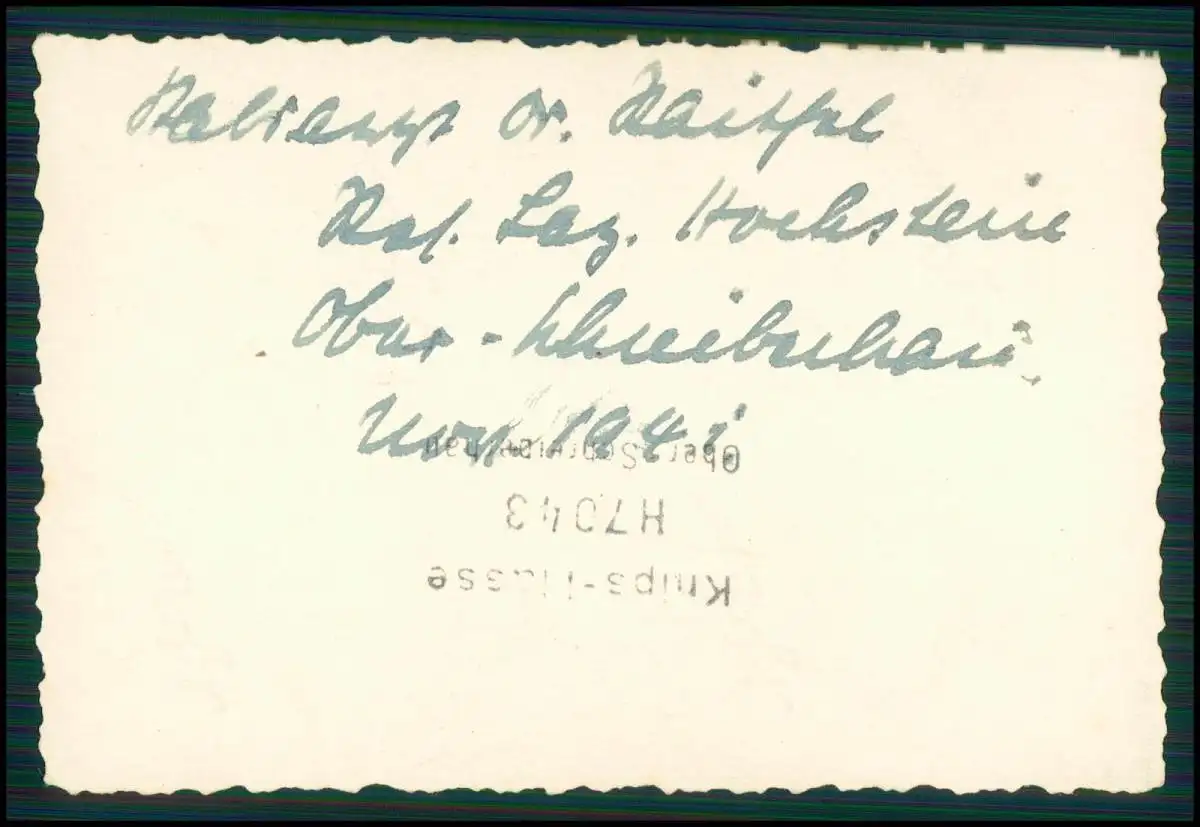 Stabsarzt Dr.
Res. Laz. Hochstein
Ober-Schreiberhau
Nov. 1941
Ober-Schreiberhau
H7043
Knips-Hasse